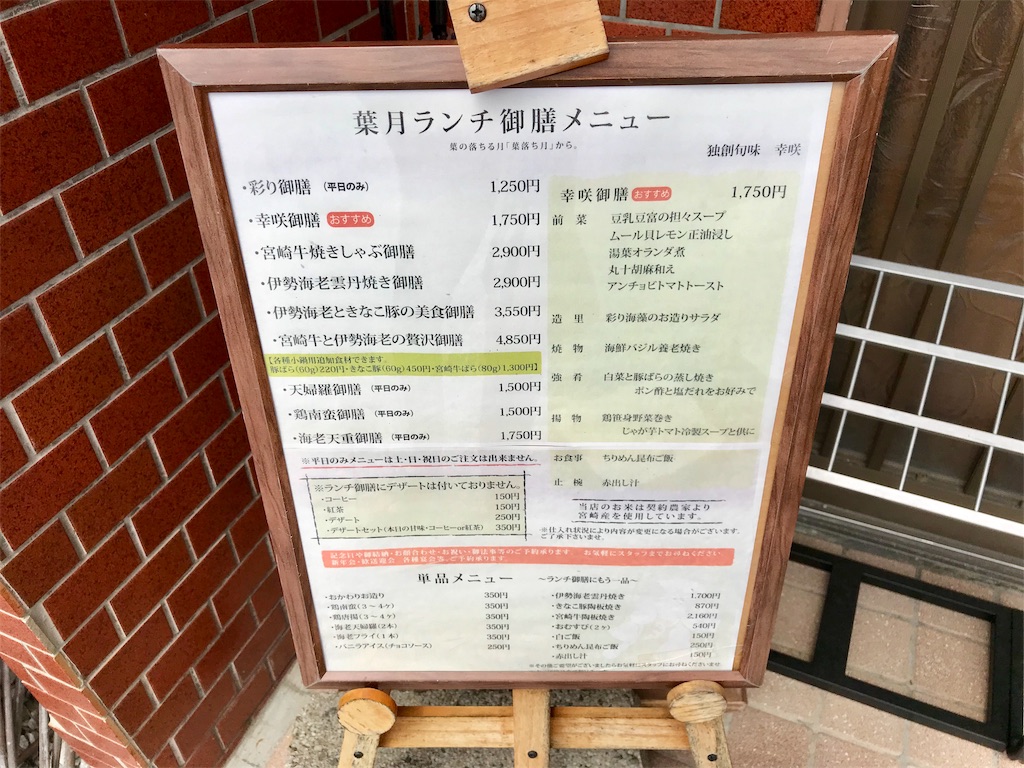 葉月ランチ御膳メニュー
葉の落ちる月「葉落ち月」から。
独創旬味 幸咲
・彩り御膳 (平日のみ) 1,250円
・幸咲御膳 おすすめ 1,750円
・宮崎牛焼きしゃぶ御膳 2,900円
・伊勢海老雲丹焼き御膳 2,900円
・伊勢海老ときなこ豚の美食御膳 3,550円
・宮崎牛と伊勢海老の贅沢御膳 4,850円
【各種小鍋用追加食材できます。
豚ばら(60g)220円・きなこ豚(60g)450円・宮崎牛ばら(80g)1,300円】
・天婦羅御膳 (平日のみ) 1,500円
・鶏南蛮御膳 (平日のみ) 1,500円
・海老天重御膳 (平日のみ) 1,750円
※平日のみメニューは土・日・祝日のご注文は出来ません。
※ランチ御膳にデザートは付いておりません。
・コーヒー 150円
・紅茶 150円
・デザート 250円
・デザートセット(本日の甘味・コーヒーor紅茶) 350円
幸咲御膳 おすすめ 1,750円
前菜 豆乳豆富の担々スープ
ムール貝レモン正油浸し
湯葉オランダ煮
丸十胡麻和え
アンチョビトマトトースト
造里 彩り海藻のお造りサラダ
焼物 海鮮バジル養老焼き
強肴 白菜と豚ばらの蒸し焼き
ポン酢と塩だれをお好みで
揚物 鶏笹身野菜巻き
じゃが芋トマト冷製スープと供に
お食事 ちりめん昆布ご飯
止椀 赤出し汁
当店のお米は契約農家より
宮崎産を使用しています。
※仕入れ状況により内容が変更になる場合がございます。
ご了承下さいませ。
記念日や御結納・お顔合わせ・お祝い・御法事等のご予約承ります。 お気軽にスタッフまでお尋ねください
新年会・歓送迎会 各種宴会等、ご予約承ります。
単品メニュー ～ランチ御膳にもう一品～
・おかわりお造り 350円
・鶏南蛮(3～4ヶ) 350円
・鶏唐揚(3～4ヶ) 350円
・海老天婦羅(2本) 350円
・海老フライ(1本) 350円
・バニラアイス(チョコソース) 250円
・伊勢海老雲丹焼き 1,700円
・きなこ豚陶板焼き 870円
・宮崎牛陶板焼き 2,160円
・おむすび(2ヶ) 540円
・白ご飯 150円
・ちりめん昆布ご飯 250円
・赤出し汁 150円
※その他ご要望がございましたらお気軽にスタッフにお尋ねくださいませ